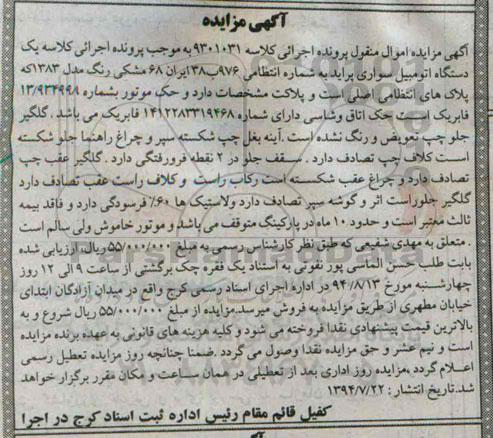 آگهی مزایده
آگهی مزایده اموال منقول پرونده اجرائی کلاسه ۹۳۰۱۰۳۱ به موجب پرونده اجرائی کلاسه یک
دستگاه اتومبیل سواری پراید به شماره انتظامی ۹۷۶ب۳۸ ایران ۶۸ مشکی رنگ مدل ۱۳۸۳که
پلاک های انتظامی اصلی است و پلاکت مشخصات دارد و حک موتور بشماره ۱۲/۹۳۴۹۹۸
فابریک است حک اتاق وشاسی دارای شماره ۱۴۱۲۲۸۳۳۱۹۴۶۸ فابریک می باشد . گلگیر
جلو چپ تعویض و رنگ نشده است .آینه بغل چپ شکسته سپر و چراغ راهنما جلو شکسته
است کلاف چپ تصادف دارد . سقف جلو در ۲ نقطه فرورفتگی دارد . گلگیر عقب چپ
تصادف دارد و چراغ عقب شکسته است رکاب راست و کلاف راست عقب تصادف دارد
گلگیر جلوراست اثر و گوشه سپر تصادف دارد ولاستیک ها ۶۰٪ فرسودگی دارد و فاقد بیمه
ثالث معتبر است و حدود ۱۰ ماه در پارکینگ متوقف می باشد و موتور خاموش ولی سالم است
. متعلق به مهدی شفیعی که طبق نظر کارشناس رسمی به مبلغ ۵۵/۰۰۰/۰۰۰ ریال، ارزیابی شده
بابت طلب حسن الماسی پور نقونی به استناد یک فقره چک برگشتی از ساعت ۹ الی ۱۲ روز
چهارشنبه مورخ ۹۴/۸/۱۳ در اداره اجرای اسناد رسمی کرج واقع در میدان آزادگان ابتدای
خیابان مطهری از طریق مزایده به فروش میرسد.مزایده از مبلغ ۵۵/۰۰۰/۰۰۰ ریال شروع و به
بالاترین قیمت پیشنهادی نقدا فروخته می شود و کلیه هزینه های قانونی به عهده برنده مزایده
است و نیم عشر و حق مزایده نقدا وصول می گردد .ضمنا چنانچه روز مزایده تعطیل رسمی
اعلام گردد ،مزایده روز اداری بعد از تعطیلی در همان ساعت و مکان مقرر برگزار خواهد
شد.تاریخ انتشار : ۱۳۹۴/۷/۲۲
کفیل قائم مقام رئیس اداره ثبت اسناد کرج در اجرا
ParsNamadData